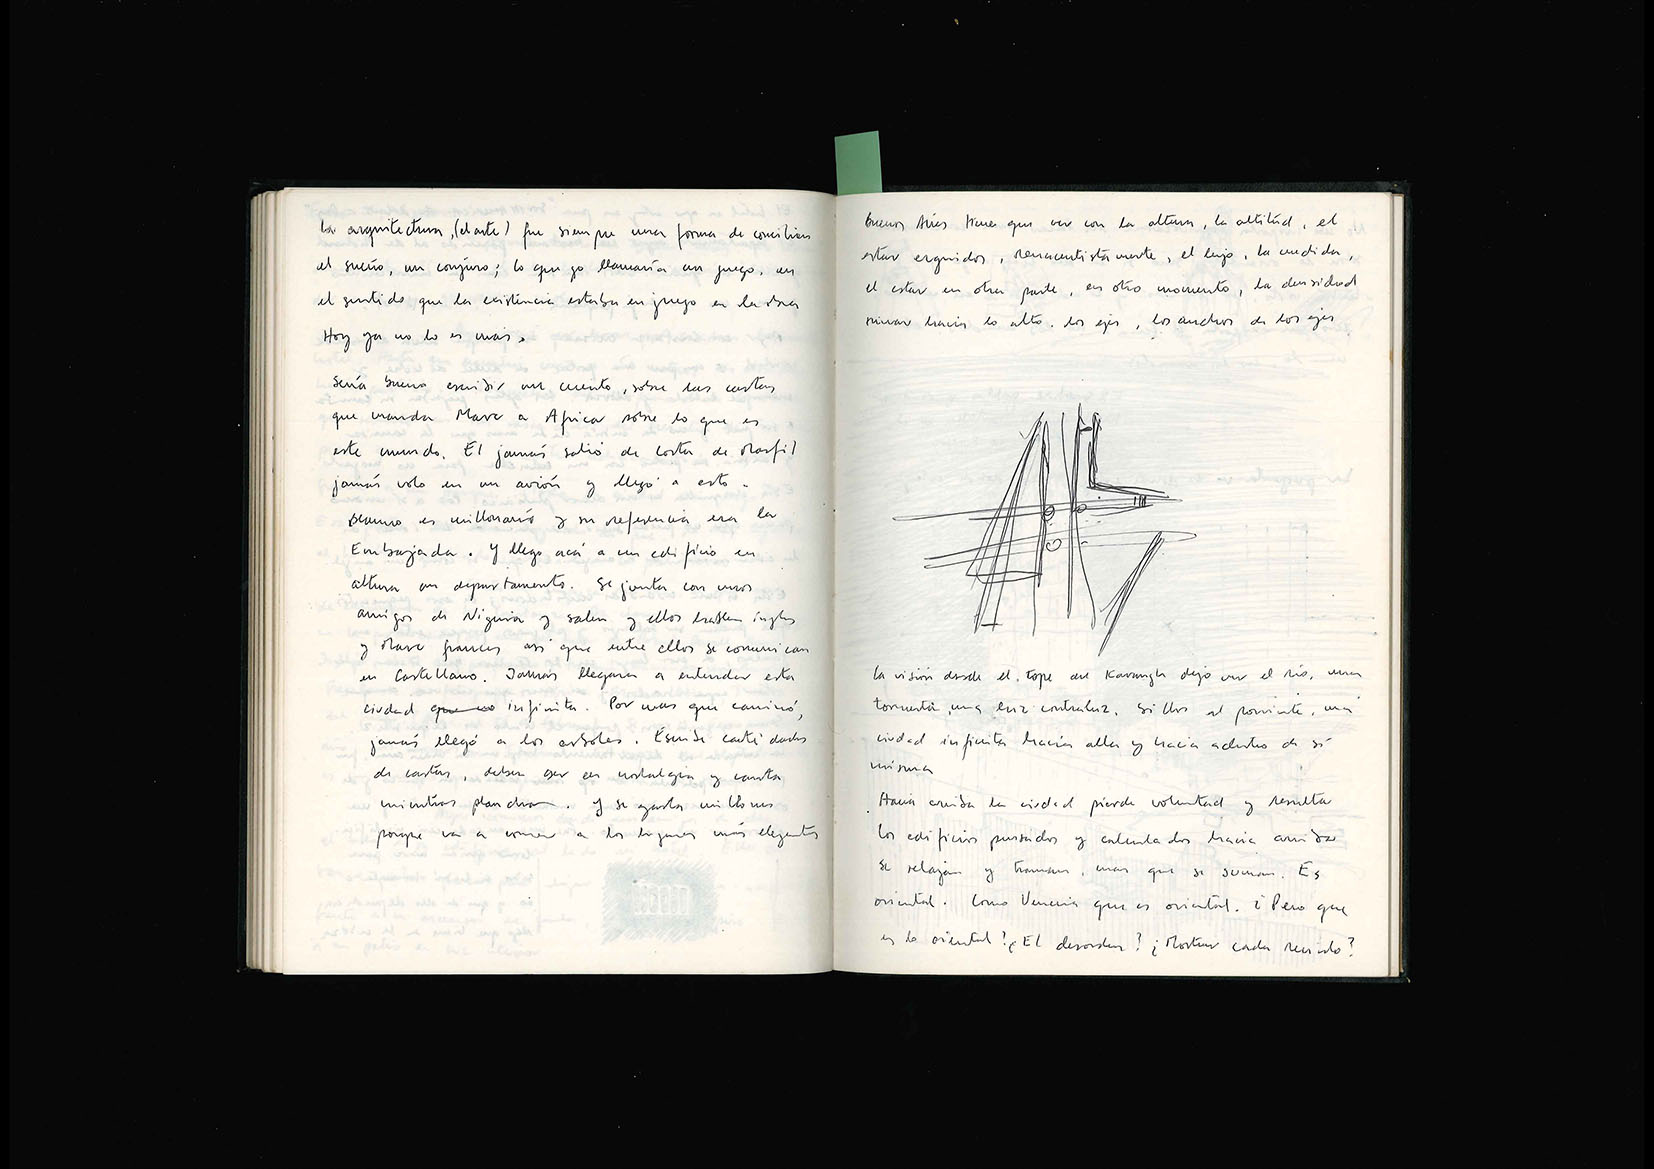 La arquitectura, (el arte) fue siempre una forma de conciliar
el sueño, un conjuro; lo que yo llamaría un juego, en
el sentido que la existencia estaba en juego en la obra
Hoy ya no lo es más.
Sería bueno escribir un cuento, sobre las cartas
que manda Marc a Africa sobre lo que es
este mundo. El jamás salió de Costa de Marfil
jamás voló en un avión y llegó a esto.
es millonario y su referencia era la
Embajada. Y llego acá a un edificio en
altura un departamento. Se junta con unos
amigos de Nigeria y salen y ellos hablan ingles
y Marc frances asi que entre ellos se comunican
en Castellano. Jamás llegara a entender esta
ciudad infinita. Por mas que caminó,
jamás llegó a los arboles. Escribe cantidades
de cartas, deben ser en nostalgia y canta
mientras plancha. Y se gasta millones
porque va a comer a los lugares más elegantes
Buenos Aires tiene que ver con la altura, la altitud, el
estar erguidos, renacentistamente, el lujo, la medida,
el estar en otra parte, en otro momento, la densidad
mirar hacia lo alto. Los ejes, los anchos de los ejes
La visión desde el tope del Kavanagh dejo ver el río, una
tormenta, una luz contraluz. el poniente, una
ciudad infinita hacia alla y hacia adentro de sí
misma
Hacia arriba la ciudad pierde voluntad y resulta
los edificios pensados y hacia arriba
se relajan y traman, mas que se suman. Es
oriental. Como Venecia que es oriental. ¿Pero que
es lo oriental? ¿El desorden? ¿Mostrar cada?